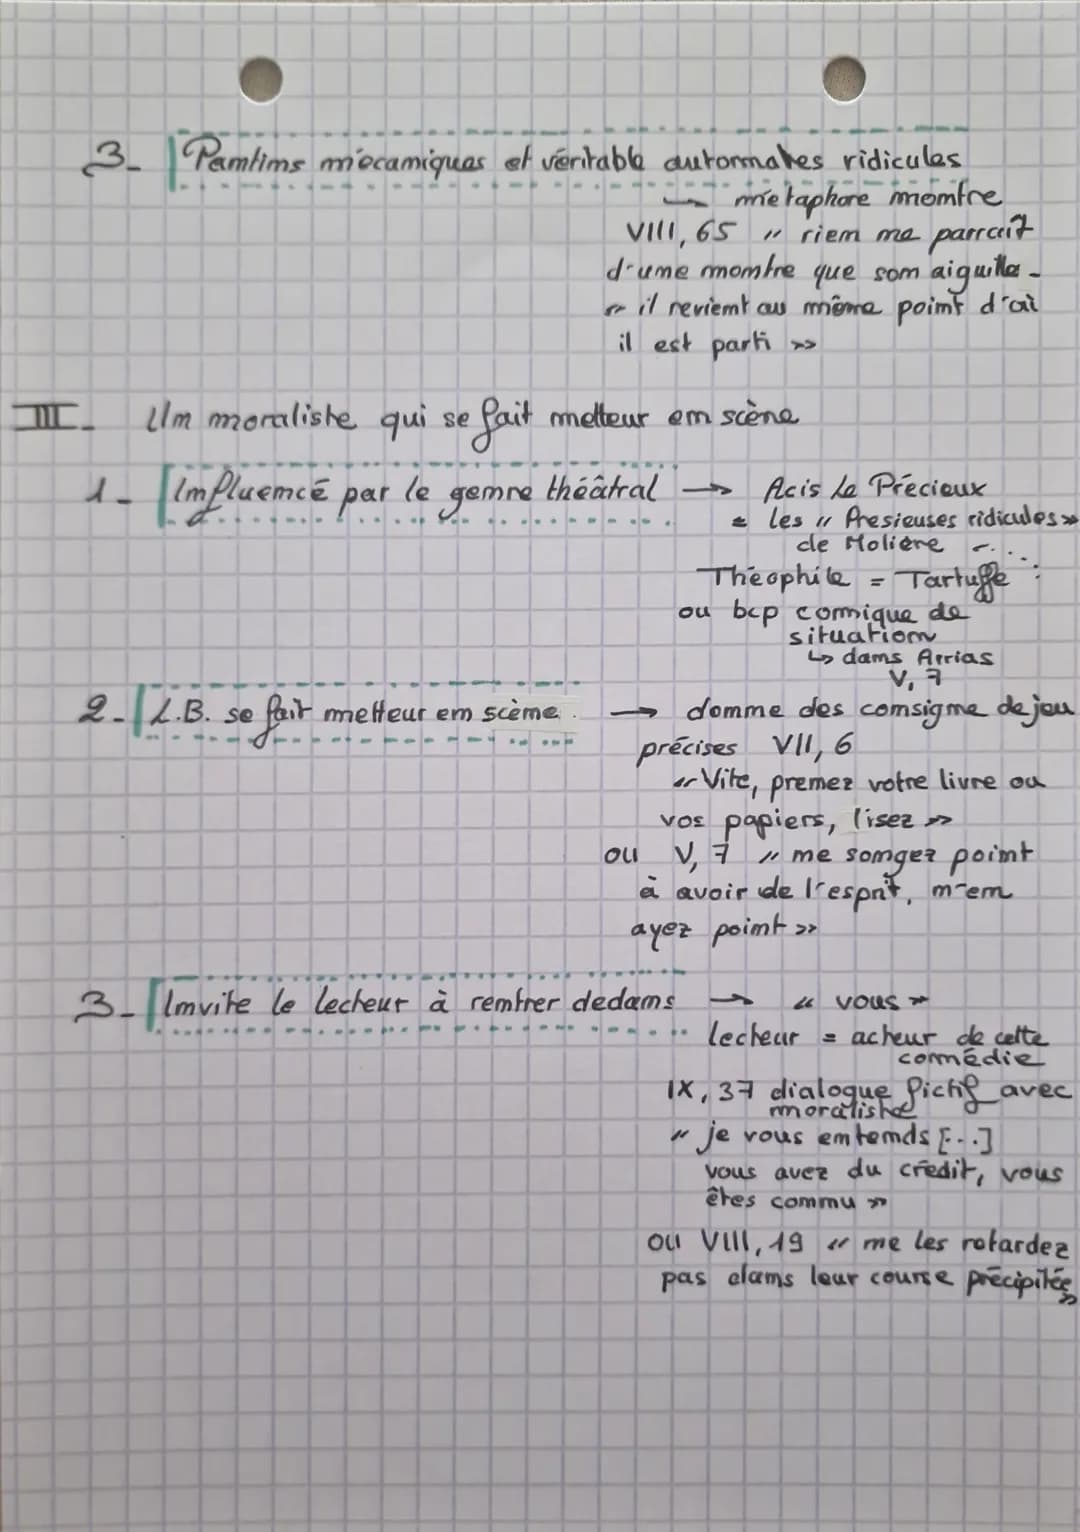 3- Pantins mécaniques et véritable automates ridicules
→ métaphore montre
VIII, 65 " rien ne parraît
d'une montre que son aiguille -
" il revient au même point d'où
il est parti »
III- Un moraliste qui se fait metteur en scène
1- Influencé par le genre théâtral → Acis le Précieux
= les " Presieuses ridicules »
de Molière -...
Théophile = Tartuffe :
ou bcp comique de
situation
↳ dans Arrias
V, 7
2- L.B. se fait metteur en scène. → donne des consigne de jeu
précises VII, 6
" Vite, prenez votre livre ou
vos papiers, lisez »
ou V, 7 " ne songez point
à avoir de l'esprit, n'en
ayez point »
3- Invite le lecteur à rentrer dedans → " vous »
lecteur = acteur de cette
comédie
IX, 37 dialogue fictif avec
moraliste
" je vous entends [...]
vous avez du crédit, vous
êtes connu »
ou VIII, 19 " ne les retardez
pas dans leur course précipitée
»